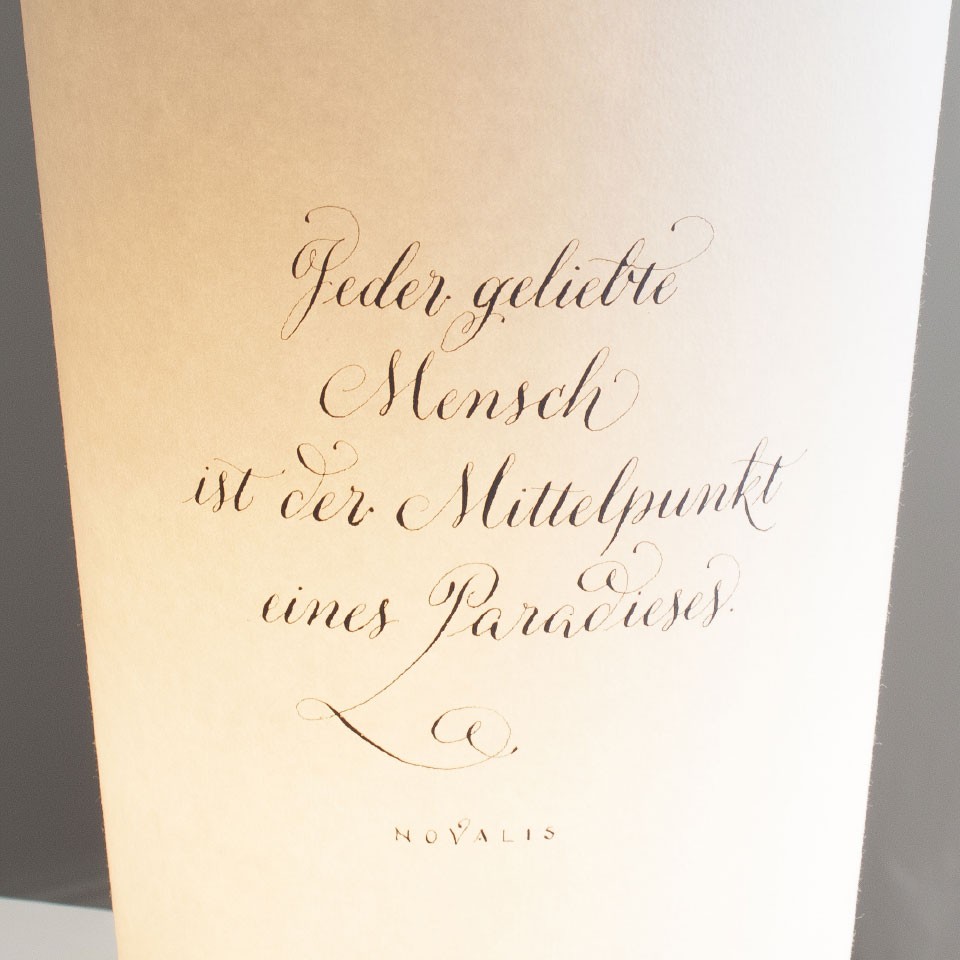 Jeder geliebte
Mensch
ist der Mittelpunkt
eines Paradieses.
NOVALIS